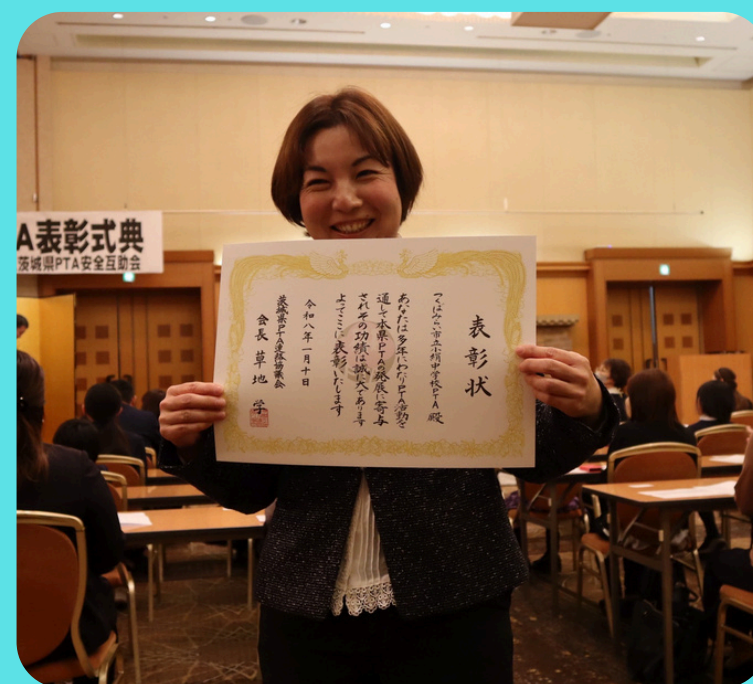 A表彰式典
茨城県PTA安全互助会
表彰状
つくばみらい市立小絹中学校PTA 殿
あなたは多年にわたりPTA活動を
通して本県PTAの発展に寄与
されその功績は誠に大であります
よってここに表彰いたします
令和八年一月十日
茨城県PTA連絡協議会
会長 草地 学